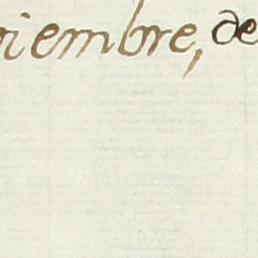 viembre, de